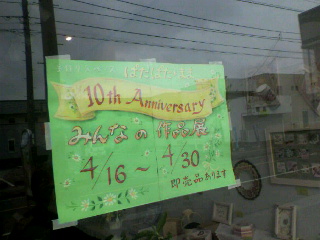 10th Anniversary
みんなの作品展
4/16～4/30
即売品あります